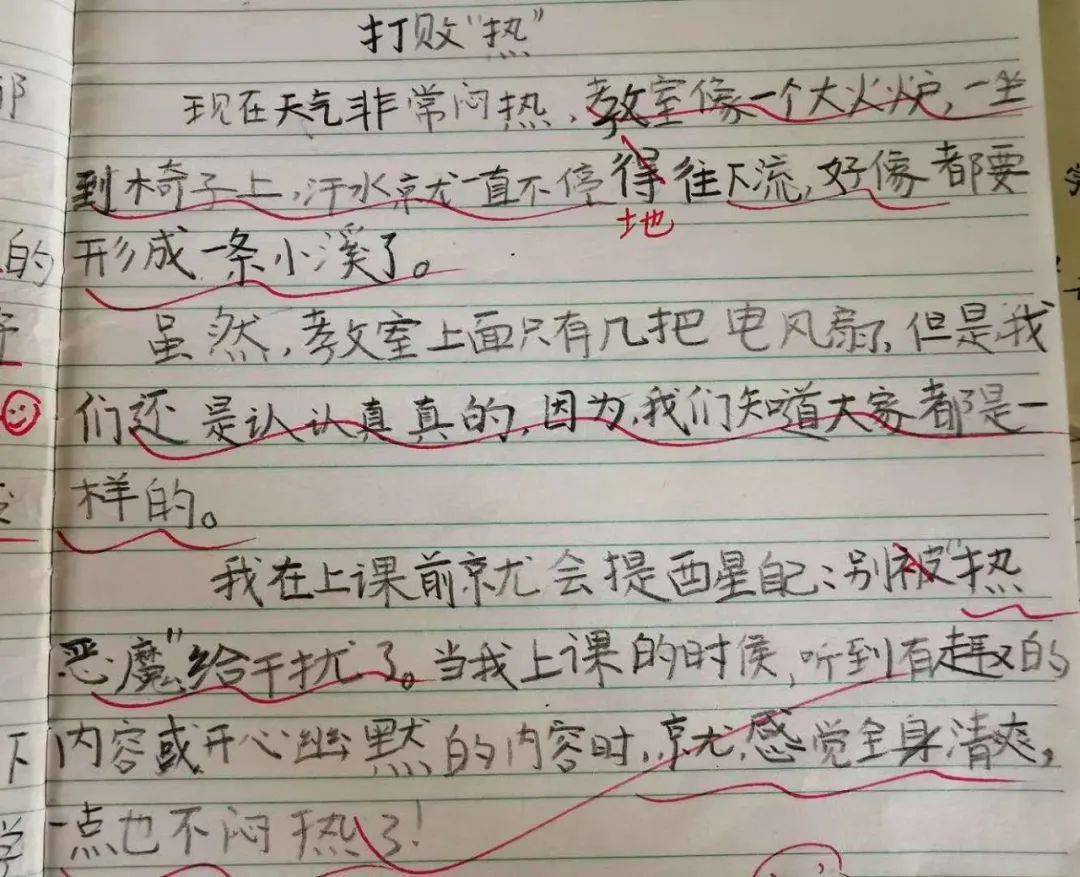 打败“热”
现在天气非常闷热，教室像一个大火炉，一坐
到椅子上，汗水就一直不停得往下流，好像都要
地
形成一条小溪了。
虽然，教室上面只有几把电风扇，但是我
们还是认认真真的，因为，我们知道大家都是一
样的。
我在上课前就会提醒自己：别被“热
恶魔”给干扰了。当我上课的时候，听到有趣的
内容或开心幽默的内容时，就感觉全身清爽，
一点也不闷热了！
的
下
学